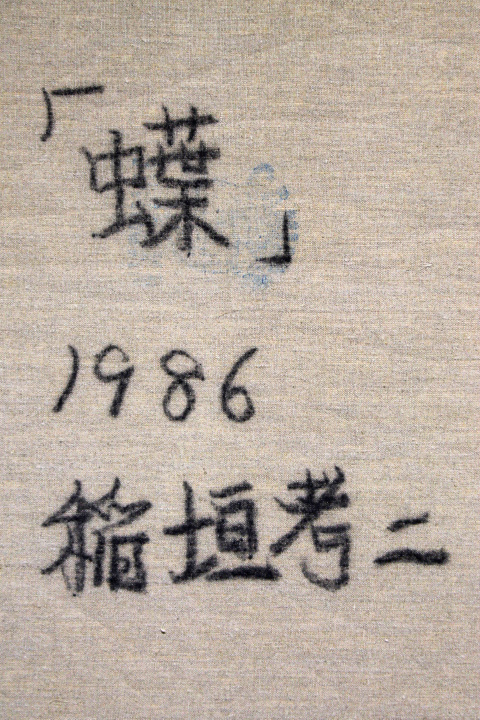 「蝶」
1986
稲垣考二